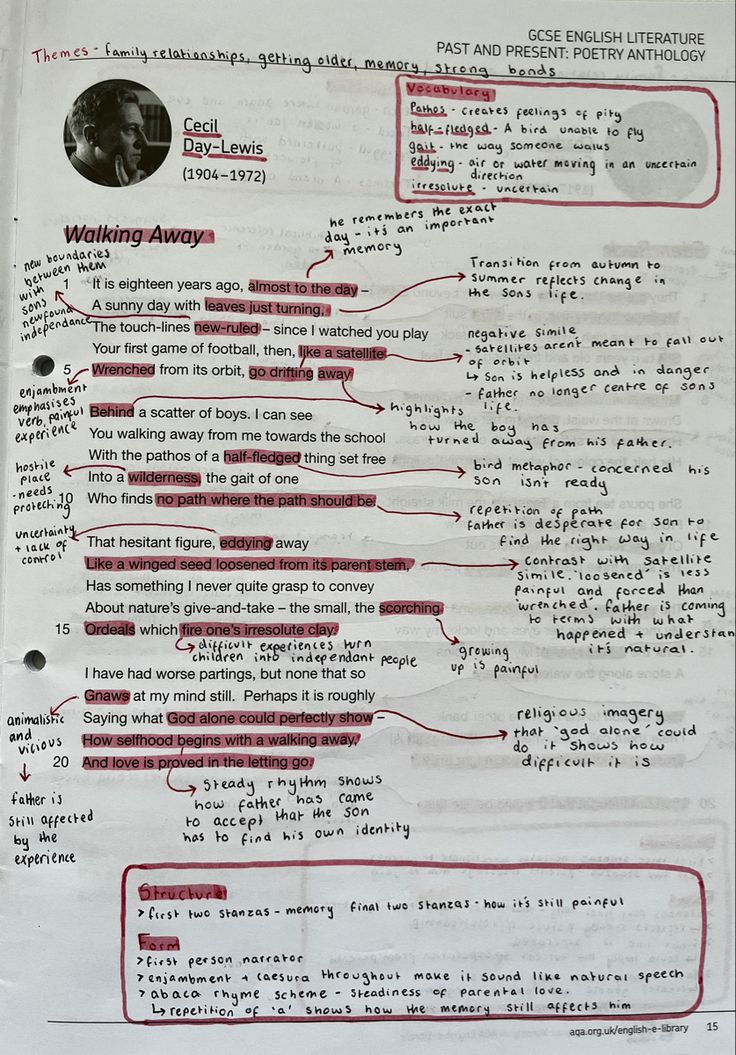 GCSE ENGLISH LITERATURE
PAST AND PRESENT: POETRY ANTHOLOGY
Themes - family relationships, getting older, memory, strong bonds
Cecil
Day-Lewis
(1904–1972)
Vocabulary
Pathos - creates feelings of pity
half-fledged - A bird unable to fly
gait - the way someone walks
eddying - air or water moving in an uncertain
direction
irresolute - uncertain
Walking Away
he remembers the exact
day - it's an important
memory
new boundaries
between them
with
sons
newfound
independance
Transition from autumn to
summer reflects change in
the sons life.
1 It is eighteen years ago, almost to the day –
A sunny day with leaves just turning,
The touch-lines new-ruled – since I watched you play
Your first game of football, then, like a satellite
5 Wrenched from its orbit, go drifting away
negative simile
- satellites aren't meant to fall out
of orbit
↳ son is helpless and in danger
- father no longer centre of sons
life.
enjambment
emphasises
verb, painful
experience
Behind a scatter of boys. I can see
You walking away from me towards the school
With the pathos of a half-fledged thing set free
Into a wilderness, the gait of one
10 Who finds no path where the path should be.
highlights
how the boy has
turned away from his father.
hostile
place
- needs
protecting
bird metaphor - concerned his
son isn't ready
repetition of path
father is desperate for son to
find the right way in life
uncertainty
+ lack of
control
That hesitant figure, eddying away
Like a winged seed loosened from its parent stem,
Has something I never quite grasp to convey
About nature's give-and-take – the small, the scorching
15 Ordeals which fire one's irresolute clay.
contrast with satellite
simile. 'loosened' is less
painful and forced than
'wrenched'. father is coming
to terms with what
happened + understan
it's natural.
difficult experiences turn
children into independant people
growing
up is painful
I have had worse partings, but none that so
Gnaws at my mind still. Perhaps it is roughly
Saying what God alone could perfectly show –
How selfhood begins with a walking away,
20 And love is proved in the letting go.
animalistic
and
vicious
father is
still affected
by the
experience
religious imagery
that 'god alone' could
do it shows how
difficult it is
steady rhythm shows
how father has came
to accept that the son
has to find his own identity
Structure
> first two stanzas - memory final two stanzas - how it's still painful
Form
> first person narrator
> enjambment + caesura throughout make it sound like natural speech
> abaca rhyme scheme - steadiness of parental love.
↳ repetition of 'a' shows how the memory still affects him
aqa.org.uk/english-e-library 15